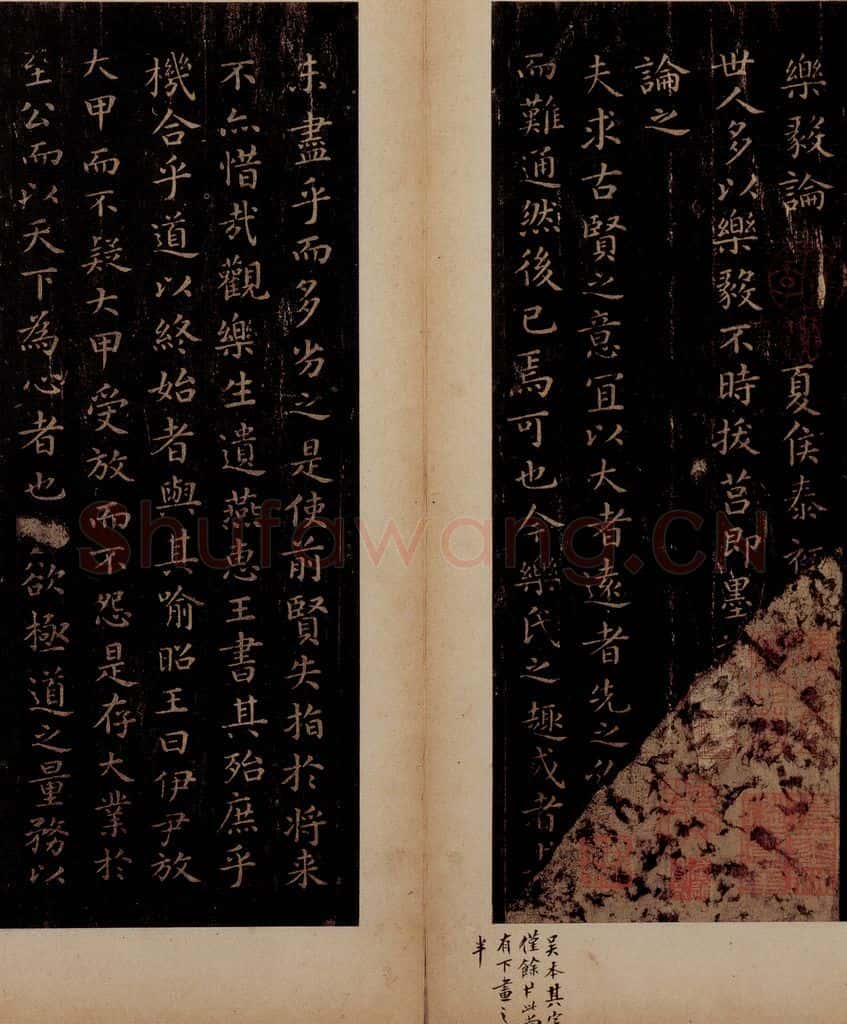 樂毅論 夏侯泰
世人多以樂毅不時拔莒即墨
論之
夫求古賢之意宜以大者遠者先之必
而難通然後已焉可也今樂氏之趣或者
未盡乎而多劣之是使前賢失指於将来
不亦惜哉觀樂生遺燕惠王書其殆庶乎
機合乎道以終始者與其喻昭王曰伊尹放
大甲而不疑大甲受放而不怨是存大業於
至公而以天下為心者也 欲極道之量務以
吴本其字
僅餘
有下畫之
半
Shufawang.CN